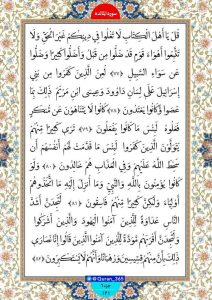 سورة المائدة
قُلْ يَا أَهْلَ الْكِتَابِ لَا تَغْلُوا فِي دِينِكُمْ غَيْرَ الْحَقِّ وَلَا
تَتَّبِعُوا أَهْوَاءَ قَوْمٍ قَدْ ضَلُّوا مِن قَبْلُ وَأَضَلُّوا كَثِيرًا وَضَلُّوا
عَن سَوَاءِ السَّبِيلِ ﴿٧٧﴾ لُعِنَ الَّذِينَ كَفَرُوا مِن بَنِي
إِسْرَائِيلَ عَلَى لِسَانِ دَاوُودَ وَعِيسَى ابْنِ مَرْيَمَ ذَلِكَ بِمَا
عَصَوا وَّكَانُوا يَعْتَدُونَ ﴿٧٨﴾ كَانُوا لَا يَتَنَاهَوْنَ عَن مُّنكَرٍ
فَعَلُوهُ لَبِئْسَ مَا كَانُوا يَفْعَلُونَ ﴿٧٩﴾ تَرَى كَثِيرًا مِّنْهُمْ
يَتَوَلَّوْنَ الَّذِينَ كَفَرُوا لَبِئْسَ مَا قَدَّمَتْ لَهُمْ أَنفُسُهُمْ أَن
سَخِطَ اللَّهُ عَلَيْهِمْ وَفِي الْعَذَابِ هُمْ خَالِدُونَ ﴿٨٠﴾ وَلَوْ
كَانُوا يُؤْمِنُونَ بِاللَّهِ وَالنَّبِيِّ وَمَا أُنزِلَ إِلَيْهِ مَا اتَّخَذُوهُمْ
أَوْلِيَاءَ وَلَكِنَّ كَثِيرًا مِّنْهُمْ فَاسِقُونَ ﴿٨١﴾ لَتَجِدَنَّ أَشَدَّ
النَّاسِ عَدَاوَةً لِّلَّذِينَ آمَنُوا الْيَهُودَ وَالَّذِينَ أَشْرَكُوا
وَلَتَجِدَنَّ أَقْرَبَهُم مَّوَدَّةً لِّلَّذِينَ آمَنُوا الَّذِينَ قَالُوا إِنَّا نَصَارَى
ذَلِكَ بِأَنَّ مِنْهُمْ قِسِّيسِينَ وَرُهْبَانًا وَأَنَّهُمْ لَا يَسْتَكْبِرُونَ ﴿٨٢﴾
@Quran_365
جزء ٦
١٢١